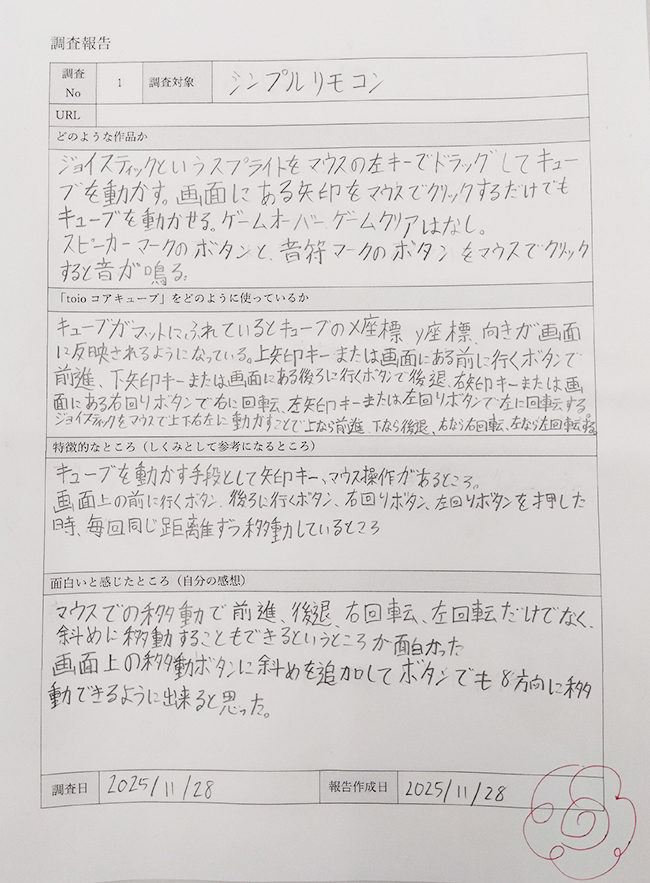 調査報告
調査 No 1 調査対象 シンプルリモコン
URL
どのような作品か
ジョイスティックというスプライトをマウスの左キーでドラッグしてキュー
ブを動かす。画面にある矢印をマウスでクリックするだけでも
キューブを動かせる。ゲームオーバー、ゲームクリアはなし。
スピーカーマークのボタンと、音符マークのボタンをマウスでクリック
すると音が鳴る。
「toio コアキューブ」をどのように使っているか
キューブがマットにふれているとキューブのX座標、y座標、向きが画面
に反映されるようになっている。上矢印キーまたは画面にある前に行くボタンで
前進、下矢印キーまたは画面にある後ろに行くボタンで後退、右矢印キーまたは画
面にある右回りボタンで右に回転、左矢印キーまたは左回りボタンで左に回転する
ジョイスティックをマウスで上下右左に動かすことで上なら前進、下なら後退、右なら右回転、左なら左回転する
特徴的なところ（しくみとして参考になるところ）
キューブを動かす手段として矢印キー、マウス操作があるところ。
画面上の前に行くボタン、後ろに行くボタン、右回りボタン、左回りボタンを押した
時、毎回同じ距離ずつ移動しているところ
面白いと感じたところ（自分の感想）
マウスでの移動で前進、後退、右回転、左回転だけでなく、
斜めに移動することもできるというところが面白かった
画面上の移動ボタンに斜めを追加してボタンでも8方向に移
動できるように出来ると思った。
調査日 2025/11/28 報告作成日 2025/11/28